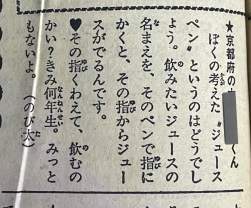 ★京都府の
くん
ぼくの考えた〝ジュース
ペン〟というのはどうでし
ょう。飲みたいジュースの
名まえを、そのペンで指に
かくと、その指からジュー
スがでるんです。
♥その指くわえて、飲むの
かい？きみ何年生。みっと
もないよ。（のび太）